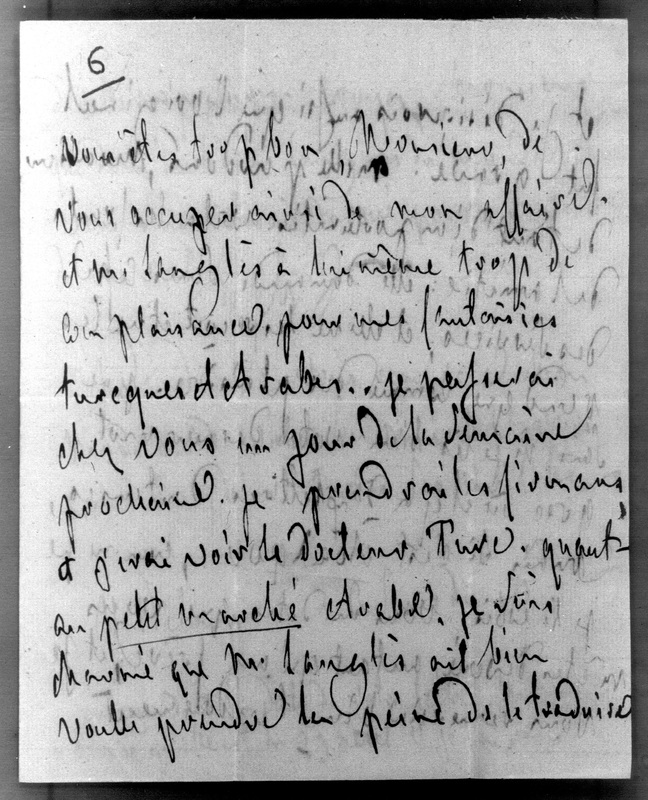 6
vous êtes trop bon, Monsieur, de
vous occuper ainsi de mon affaire.
et m. Langlès à lui même trop de
complaisance, pour mes fantaisies
turcques et Arabes.. je passerai
chez vous un jour de la semaine
prochaine. je prendrai les firmans,
et j'irai voir le docteur Turc. quant-
au petit marché Arabe, je suis
charmé que m. Langlès ait bien
voulu prendre la peine de le traduire